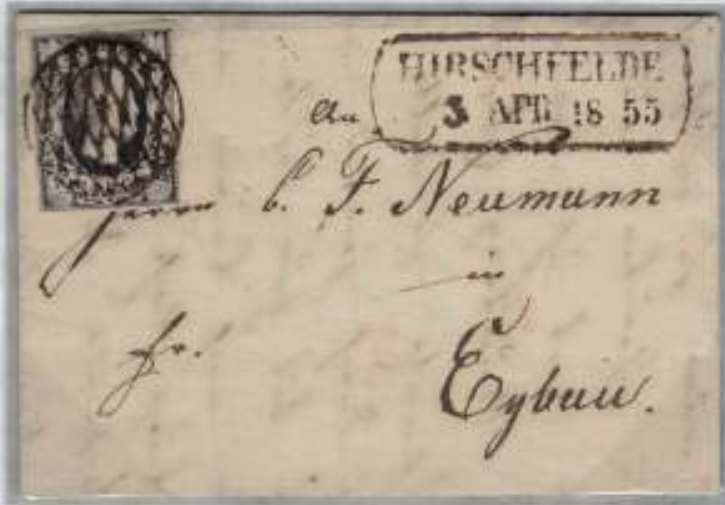 HIRSCHFELDE
3 APR 18 55
An
Herrn C. F. Neumann
in
Fr.
Eybau.